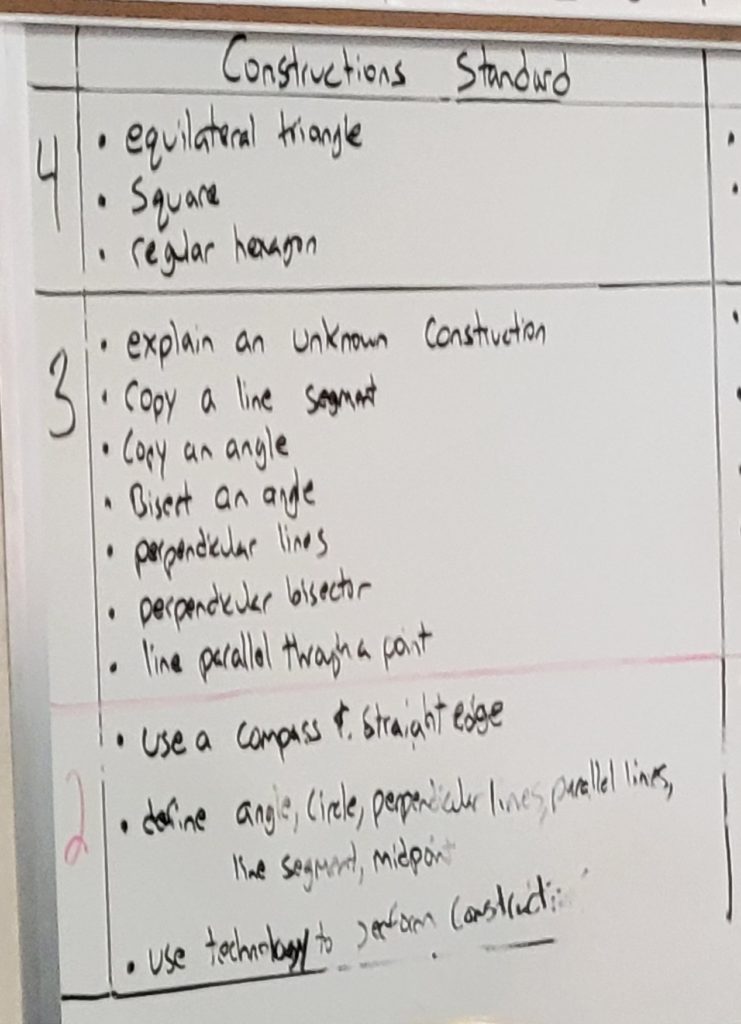 Constructions Standard
4
• equilateral triangle
• Square
• regular hexagon
3
• explain an unknown construction
• Copy a line segment
• Copy an angle
• Bisect an angle
• perpendicular lines
• perpendicular bisector
• line parallel through a point
2
• use a compass & straight edge
• define angle, circle, perpendicular lines, parallel lines,
line segment, midpoint
• use technology to perform constructi